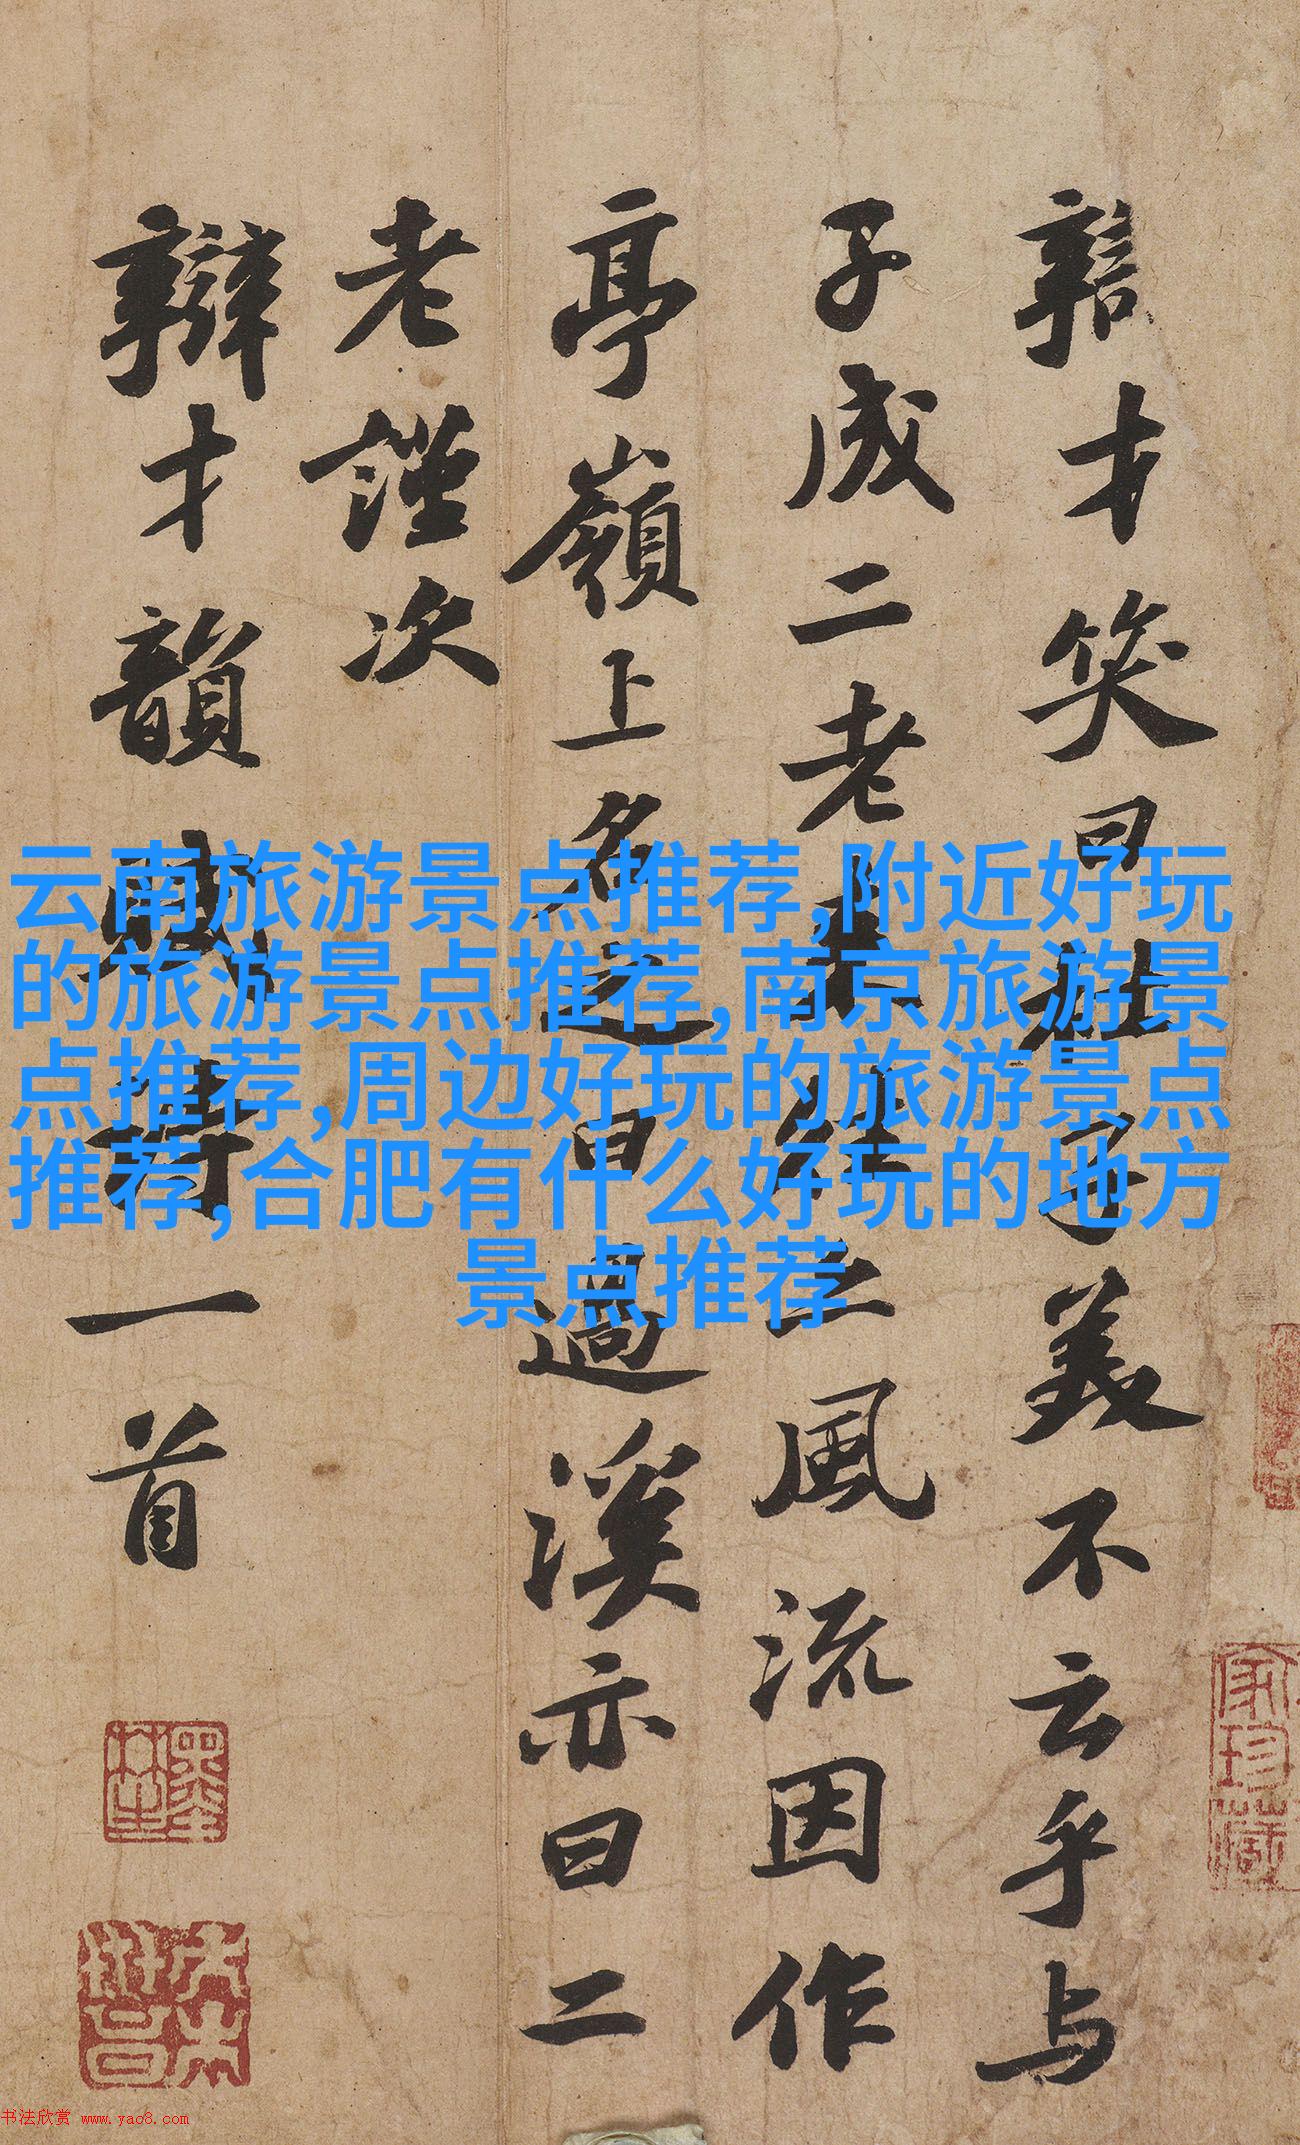 辯才笑曰杜子美不云乎与
子成二老來往亦風流因作
亭嶺上名之曰過溪亦曰二
老謹次
辯才韻賦詩一首
云南旅游景点推荐,附近好玩
的旅游景点推荐,南京旅游景
点推荐,周边好玩的旅游景点
推荐,合肥有什么好玩的地方
景点推荐
家珍藏
书法欣赏 www.yac8.com